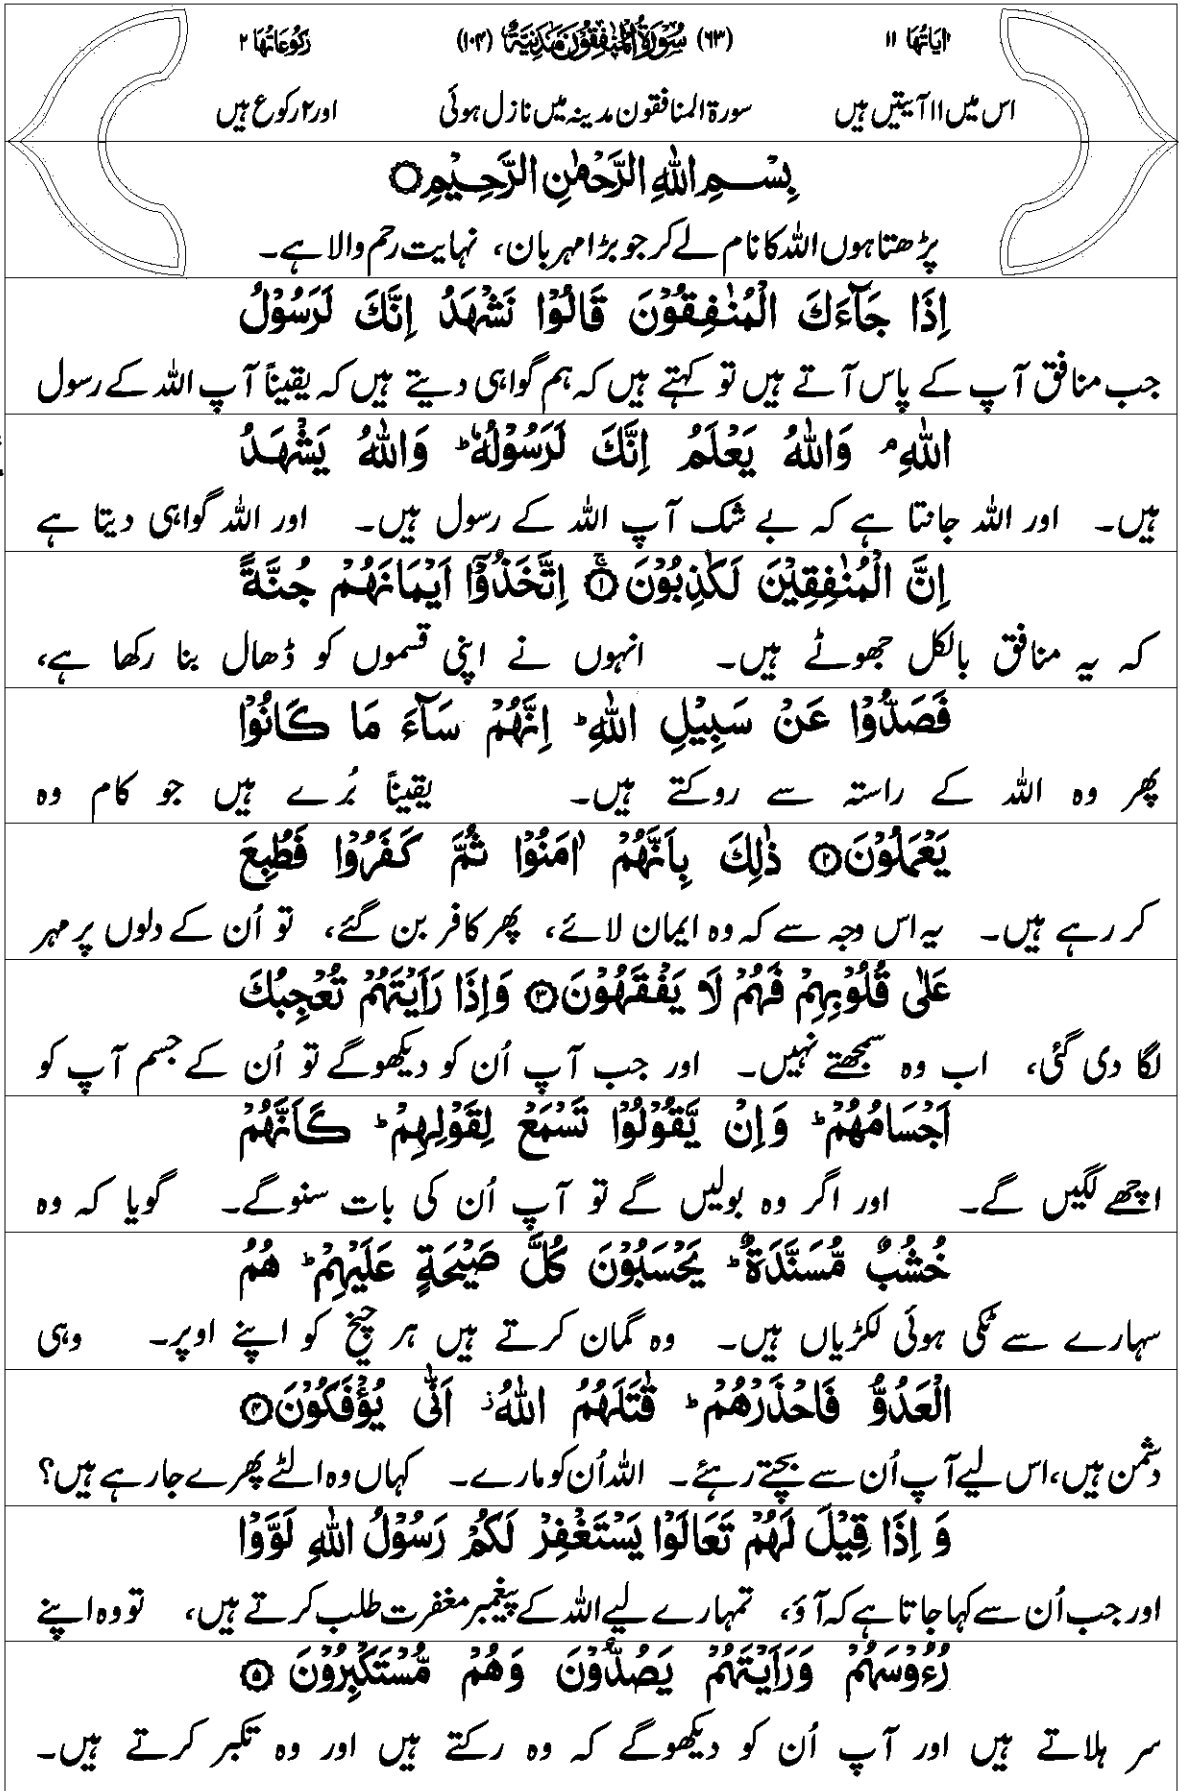 اٰيَاتُهَا ١١ (٦٣) سُوْرَةُ الْمُنٰفِقُوْنَ مَدَنِيَّةٌ (١٠٤) رُكُوْعَاتُهَا ٢
اس میں ١١ آیتیں ہیں سورۃ المنافقون مدینہ میں نازل ہوئی اور ٢ رکوع ہیں
بِسْمِ اللّٰهِ الرَّحْمٰنِ الرَّحِيْمِ○
پڑھتا ہوں اللہ کا نام لے کر جو بڑا مہربان، نہایت رحم والا ہے۔
اِذَا جَآءَكَ الْمُنٰفِقُوْنَ قَالُوْا نَشْهَدُ اِنَّكَ لَرَسُوْلُ
جب منافق آپ کے پاس آتے ہیں تو کہتے ہیں کہ ہم گواہی دیتے ہیں کہ یقیناً آپ اللہ کے رسول
اللّٰهِ ۘ وَاللّٰهُ يَعْلَمُ اِنَّكَ لَرَسُوْلُهٗ ؕ وَاللّٰهُ يَشْهَدُ
ہیں۔ اور اللہ جانتا ہے کہ بے شک آپ اللہ کے رسول ہیں۔ اور اللہ گواہی دیتا ہے
اِنَّ الْمُنٰفِقِيْنَ لَكٰذِبُوْنَ ۚ۝١ اِتَّخَذُوْۤا اَيْمَانَهُمْ جُنَّةً
کہ یہ منافق بالکل جھوٹے ہیں۔ انہوں نے اپنی قسموں کو ڈھال بنا رکھا ہے،
فَصَدُّوْا عَنْ سَبِيْلِ اللّٰهِ ؕ اِنَّهُمْ سَآءَ مَا كَانُوْا
پھر وہ اللہ کے راستہ سے روکتے ہیں۔ یقیناً بُرے ہیں جو کام وہ
يَعْمَلُوْنَ ۝٢ ذٰلِكَ بِاَنَّهُمْ اٰمَنُوْا ثُمَّ كَفَرُوْا فَطُبِعَ
کر رہے ہیں۔ یہ اس وجہ سے کہ وہ ایمان لائے، پھر کافر بن گئے، تو اُن کے دلوں پر مہر
عَلٰى قُلُوْبِهِمْ فَهُمْ لَا يَفْقَهُوْنَ ۝٣ وَاِذَا رَاَيْتَهُمْ تُعْجِبُكَ
لگا دی گئی، اب وہ سمجھتے نہیں۔ اور جب آپ اُن کو دیکھوگے تو اُن کے جسم آپ کو
اَجْسَامُهُمْ ؕ وَاِنْ يَّقُوْلُوْا تَسْمَعْ لِقَوْلِهِمْ ؕ كَاَنَّهُمْ
اچھے لگیں گے۔ اور اگر وہ بولیں گے تو آپ اُن کی بات سنوگے۔ گویا کہ وہ
خُشُبٌ مُّسَنَّدَةٌ ؕ يَحْسَبُوْنَ كُلَّ صَيْحَةٍ عَلَيْهِمْ ؕ هُمُ
سہارے سے ٹکی ہوئی لکڑیاں ہیں۔ وہ گمان کرتے ہیں ہر چیخ کو اپنے اوپر۔ وہی
الْعَدُوُّ فَاحْذَرْهُمْ ؕ قٰتَلَهُمُ اللّٰهُ ؗ اَنّٰى يُؤْفَكُوْنَ ۝٤
دشمن ہیں، اس لیے آپ اُن سے بچتے رہئے۔ اللہ اُن کو مارے۔ کہاں وہ الٹے پھرے جا رہے ہیں؟
وَ اِذَا قِيْلَ لَهُمْ تَعَالَوْا يَسْتَغْفِرْ لَكُمْ رَسُوْلُ اللّٰهِ لَوَّوْا
اور جب اُن سے کہا جاتا ہے کہ آؤ، تمہارے لیے اللہ کے پیغمبر مغفرت طلب کرتے ہیں، تو وہ اپنے
رُءُوْسَهُمْ وَرَاَيْتَهُمْ يَصُدُّوْنَ وَهُمْ مُّسْتَكْبِرُوْنَ ۝٥
سر ہلاتے ہیں اور آپ اُن کو دیکھوگے کہ وہ رکتے ہیں اور وہ تکبر کرتے ہیں۔